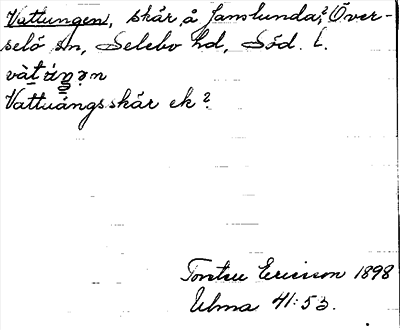 Vattungen, skär å Jamlunda,? Över-
selö sn, Selebo hd, Söd. l.
Vattuängsskär ek?
Torsten Ericsson 1898
Ulma 41:53.